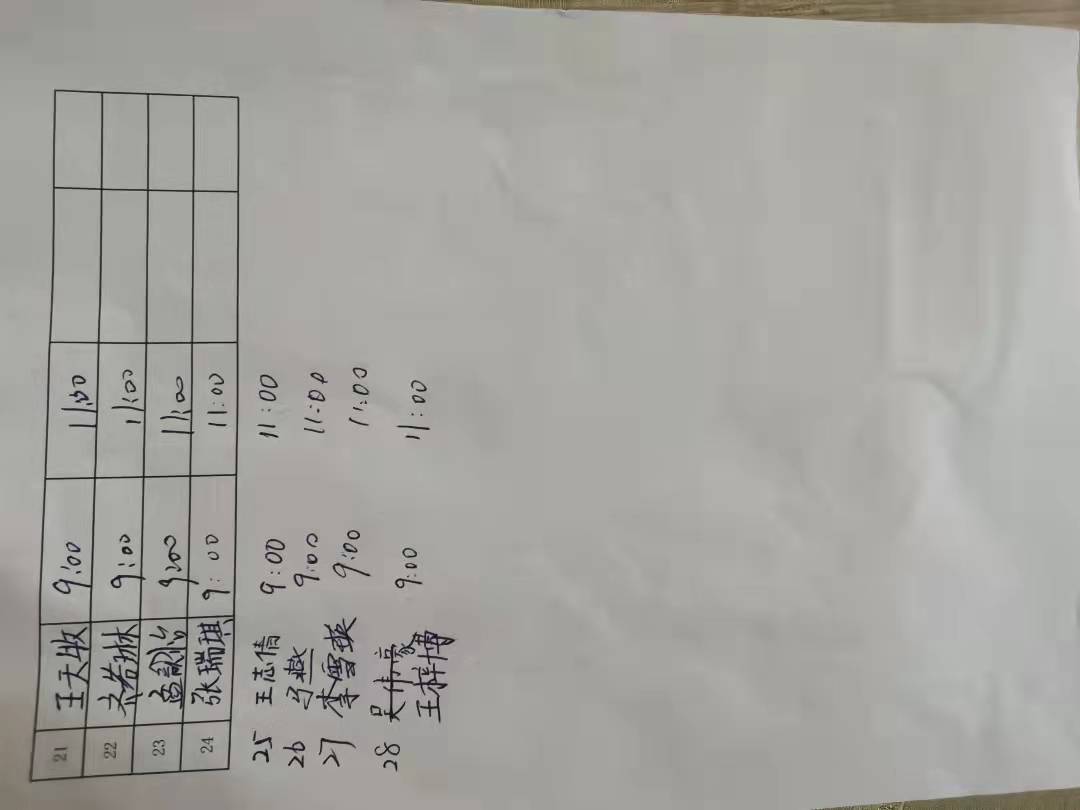 21 王天牧 9:00 11:00
22 若琳 9:00 11:00
23 孟 9:00 11:00
24 张瑞琪 9:00 11:00
25 王志倩 9:00 11:00
26 马燕 9:00 11:00
27 李雪瑛 9:00 11:00
28 吴伟豪 9:00 11:00
王梓博